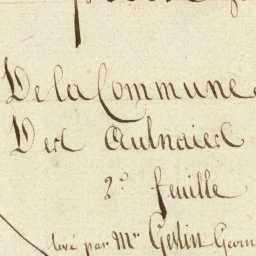 De la Commune
Des Aulnaies
2e feuille
levé par Mr Geslin Géom